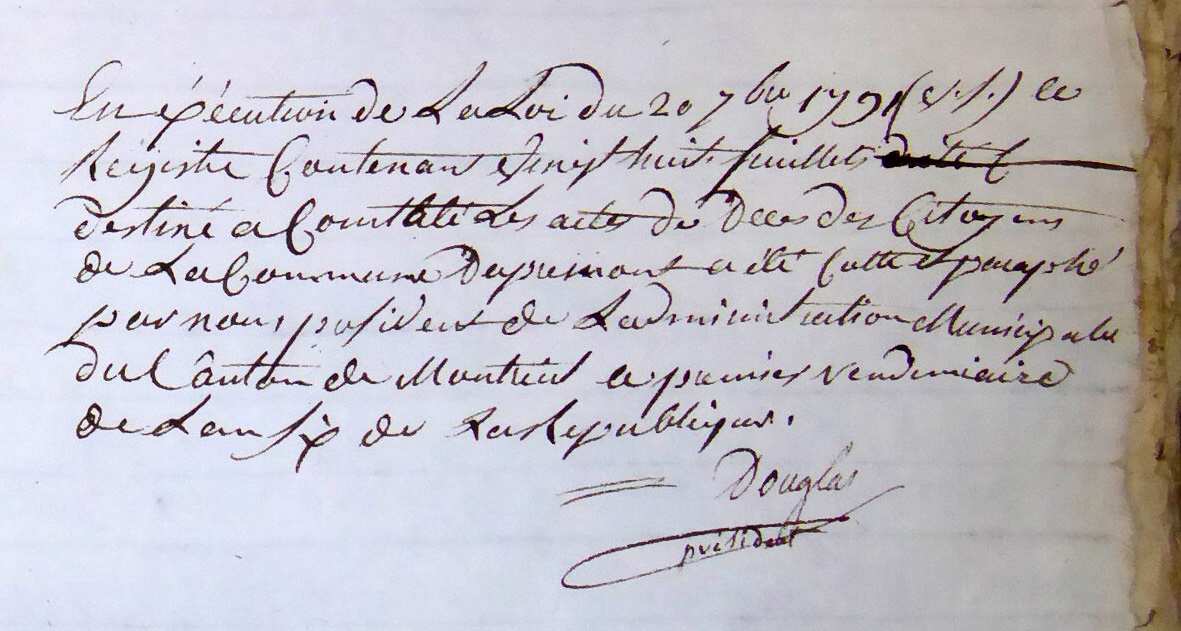 En éxécution de La Loi du 20 7bre 1791 (v.s.) ce
Régistre Contenant Vingt huit feuillets
destiné a Constaté Les actes de Deces des Citoyens
de La Commune Depremont a été Cotté et paraphé
par nous président de Ladministration Municipale
du Canton de Montreal ce premier vendemiaire
de Lan Six de La Republique.
Douglas
président